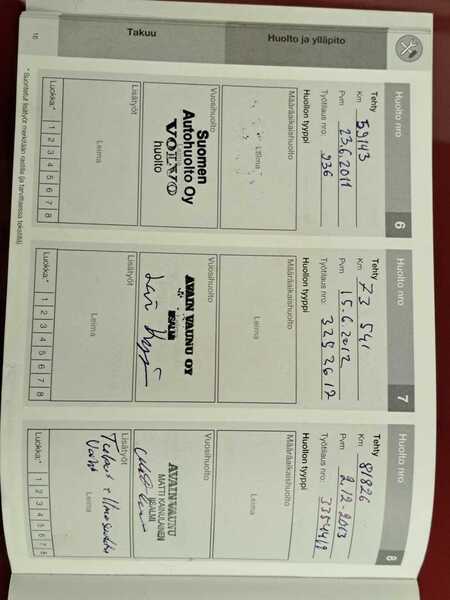 Huolto ja ylläpito
Takuu
Huolto nro
6
Tehty
Km 59143
Pvm 23.6.2011
Työtilaus nro: 936
Huollon tyyppi
Määräaikaishuolto
Leima
Vuosihuolto
Suomen
Autohuolto Oy
VOLVO
huolto
Lisätyöt
Leima
Luokka:* 1 2 3 4 5 6 7 8
Huolto nro
7
Tehty
Km 73 541
Pvm 15.6.2012
Työtilaus nro: 3252612
Huollon tyyppi
Määräaikaishuolto
Leima
Vuosihuolto
AVAIN VAUNU OY
IISALMI
Lisätyöt
Leima
Luokka:* 1 2 3 4 5 6 7 8
Huolto nro
8
Tehty
Km 81826
Pvm 2.12-2013
Työtilaus nro: 3354419
Huollon tyyppi
Määräaikaishuolto
Leima
Vuosihuolto
AVAIN VAUNU
MATTI KAINULAINEN
IISALMI
Lisätyöt
Leima
Luokka:* 1 2 3 4 5 6 7 8
* Suoritetut lisätyöt merkitään rastilla (ja tarvittaessa tekstillä).
16